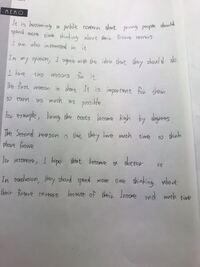 MEMO
It is becoming a public concern that young people should
spend more time thinking about their future careers
I am also interested in it
In my opinion, I agree with the idea that they should do
I have two reasons for it
The first reason is that It is important for them
to earn as much as possible
For example, living the costs become high by degrees
The second reason is that they have much time to think
about future
For instance, I hope that become a doctor
In conclusion, they should spend more time thinking about
their future careers because of their income and much time